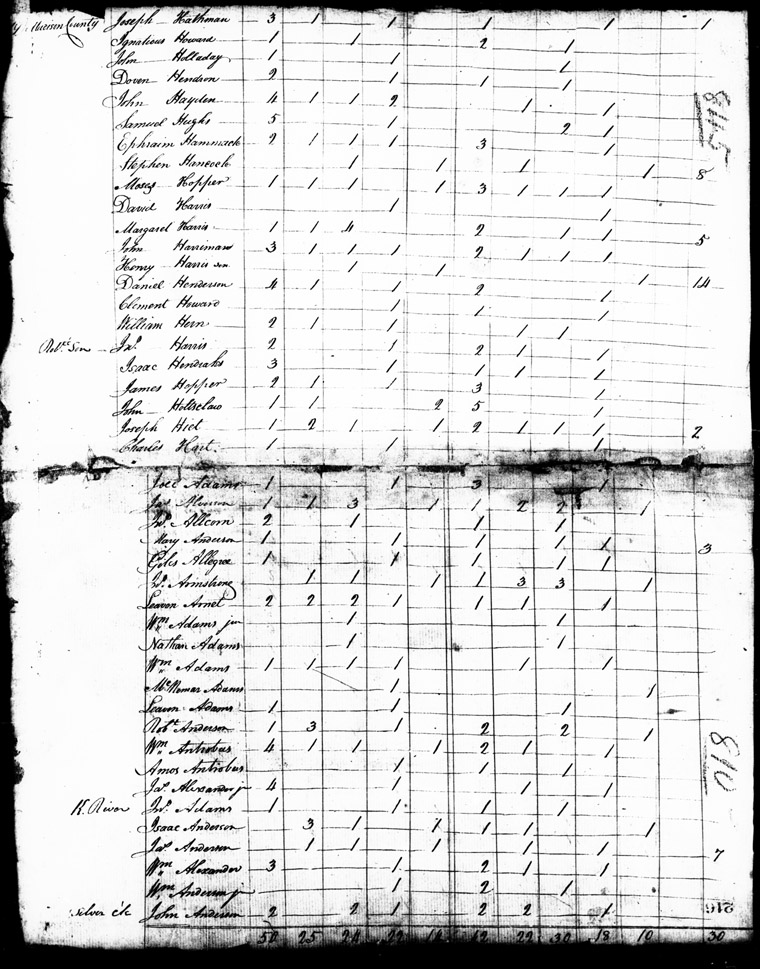 County Joseph Hathman 3 1 1 1 1 1
Ignatious Howard 1 1 2 1
John Holladay 1 1 1
Doven Hendson 2 1 1 1
John Hayden 4 1 1 2 1 1
Samuel Hughs 5 1 2 1
Ephraim Hammack 2 1 1 1 3 1
Stephen Hancock 1 1 1 1 8
Moses Hopper 1 1 1 1 3 1 1 1
David Harris 1 1
Margaret Harris 1 1 4 2 1 1 5
John Harriman 3 1 1 1 2 1 1 1
Henry Harris sen 1 1
Daniel Henderson 4 1 1 2 1 14
Clement Howard 1 1 1
William Hern 2 1 1 1 1
Jno. Harris 2 1 2 1 1
Isaac Hendraks 3 1 1 1 1
James Hopper 2 1 1 3 1
John Holtsclaw 1 1 2 5 1
Joseph Hiet 1 2 1 1 2 1 1 1 2
Charles Hart 1 1 1
845
Adams 1 1 3 1
1 1 3 1 1 2 2 1
Jno. Allcorn 2 1 1 1
Mary Anderson 1 1 1 1 1 3
Giles Allegre 1 1 1 1 1
Armstrong 1 1 1 1 3 3 1
Leaven Arnel 2 2 2 1 1 1 1
Wm Adams jur 1 1
Nathan Adams 1 1
Wm Adams 1 1 1 1 1 1
Adams 1 1
Leavn Adams 1 1 1
Robt Anderson 1 3 1 2 2 1
Wm Antrobus 4 1 1 1 2 1 1
Amos Antrobus 1 1 1
Jas. Alexander jr 4 1 1 1
K. River Jno. Adams 1 1 1 1
Isaac Anderson 3 1 1 1 1 1
Jas. Anderson 1 1 1 1 1 7
Wm Alexander 3 1 2 1 1
Wm Anderson jr 1 2 1
Silver Ck John Anderson 2 2 1 2 2 1
50 25 24 22 12 22 30 18 10 30
810
216